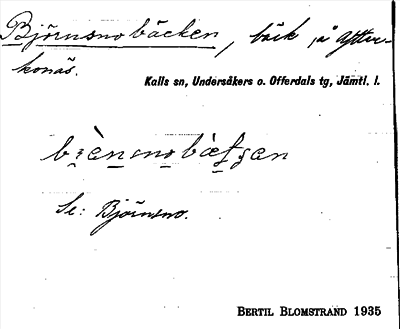 Björnsnobäcken, bäck på After-
konäs.
Kalls sn, Undersåkers o. Offerdals tg, Jämtl. l.
Se: Björnsno.
BERTIL BLOMSTRAND 1935